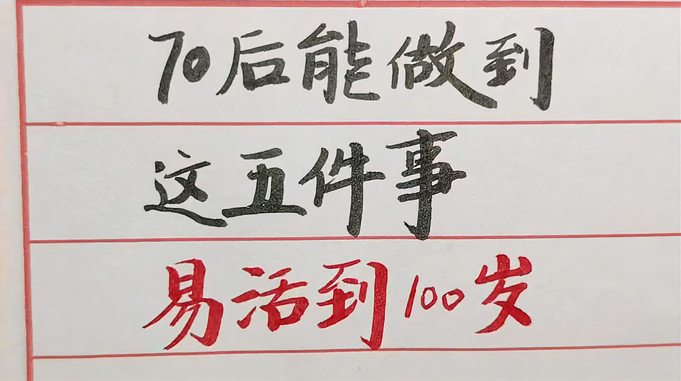 70后能做到
这五件事
易活到100岁